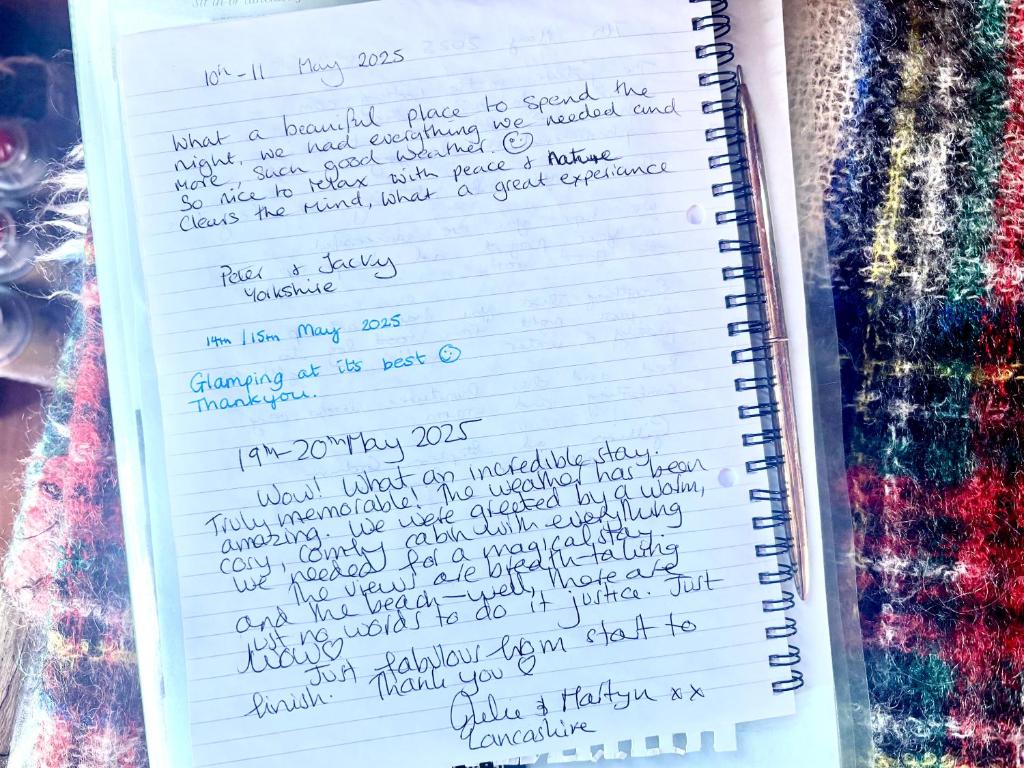 10th-11 May 2025
What a beauiful place to spend the
night, we had everything we needed and
more, such good weather. ☺
So nice to relax with peace & nature
Clears the mind, what a great experiance
Peter & Jacky
Yorkshire
14th/15th May 2025
Glamping at its best ☺
Thankyou.
19th-20th May 2025
Wow! What an incredible stay.
Truly memorable! The weather has been
amazing. We were greeted by a warm,
cosy, comfy cabin with everything
we needed for a magical stay.
The views are breath-taking
and the beach-well, there are
just no words to do it justice. Just
wow♡
Just fabulous from start to
finish. Thank you ♡
Julie & Martyn x x
Lancashire